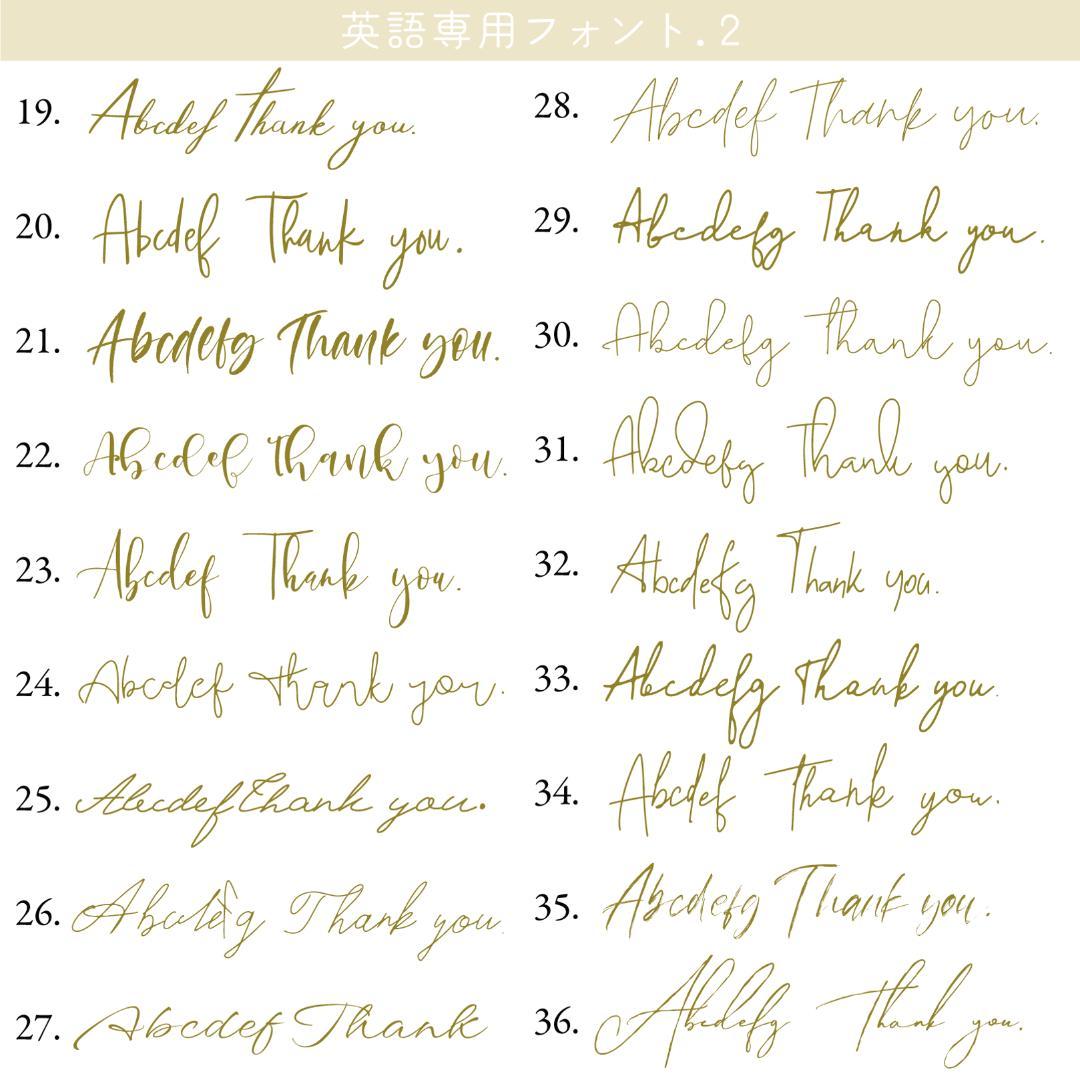 英語専用フォント.2
19. Abcdef Thank you.
20. Abcdef Thank you.
21. Abcdefg Thank you.
22. Abcdef Thank you.
23. Abcdef Thank you.
24. Abcdef Thank you.
25. Abcdef Thank you.
26. Abcdefg Thank you.
27. Abcdef Thank
28. Abcdef Thank you.
29. Abcdefg Thank you.
30. Abcdefg Thank you.
31. Abcdefg Thank you.
32. Abcdefg Thank you.
33. Abcdefg Thank you.
34. Abcdef Thank you.
35. Abcdefg Thank you.
36. Abcdefg Thank you.